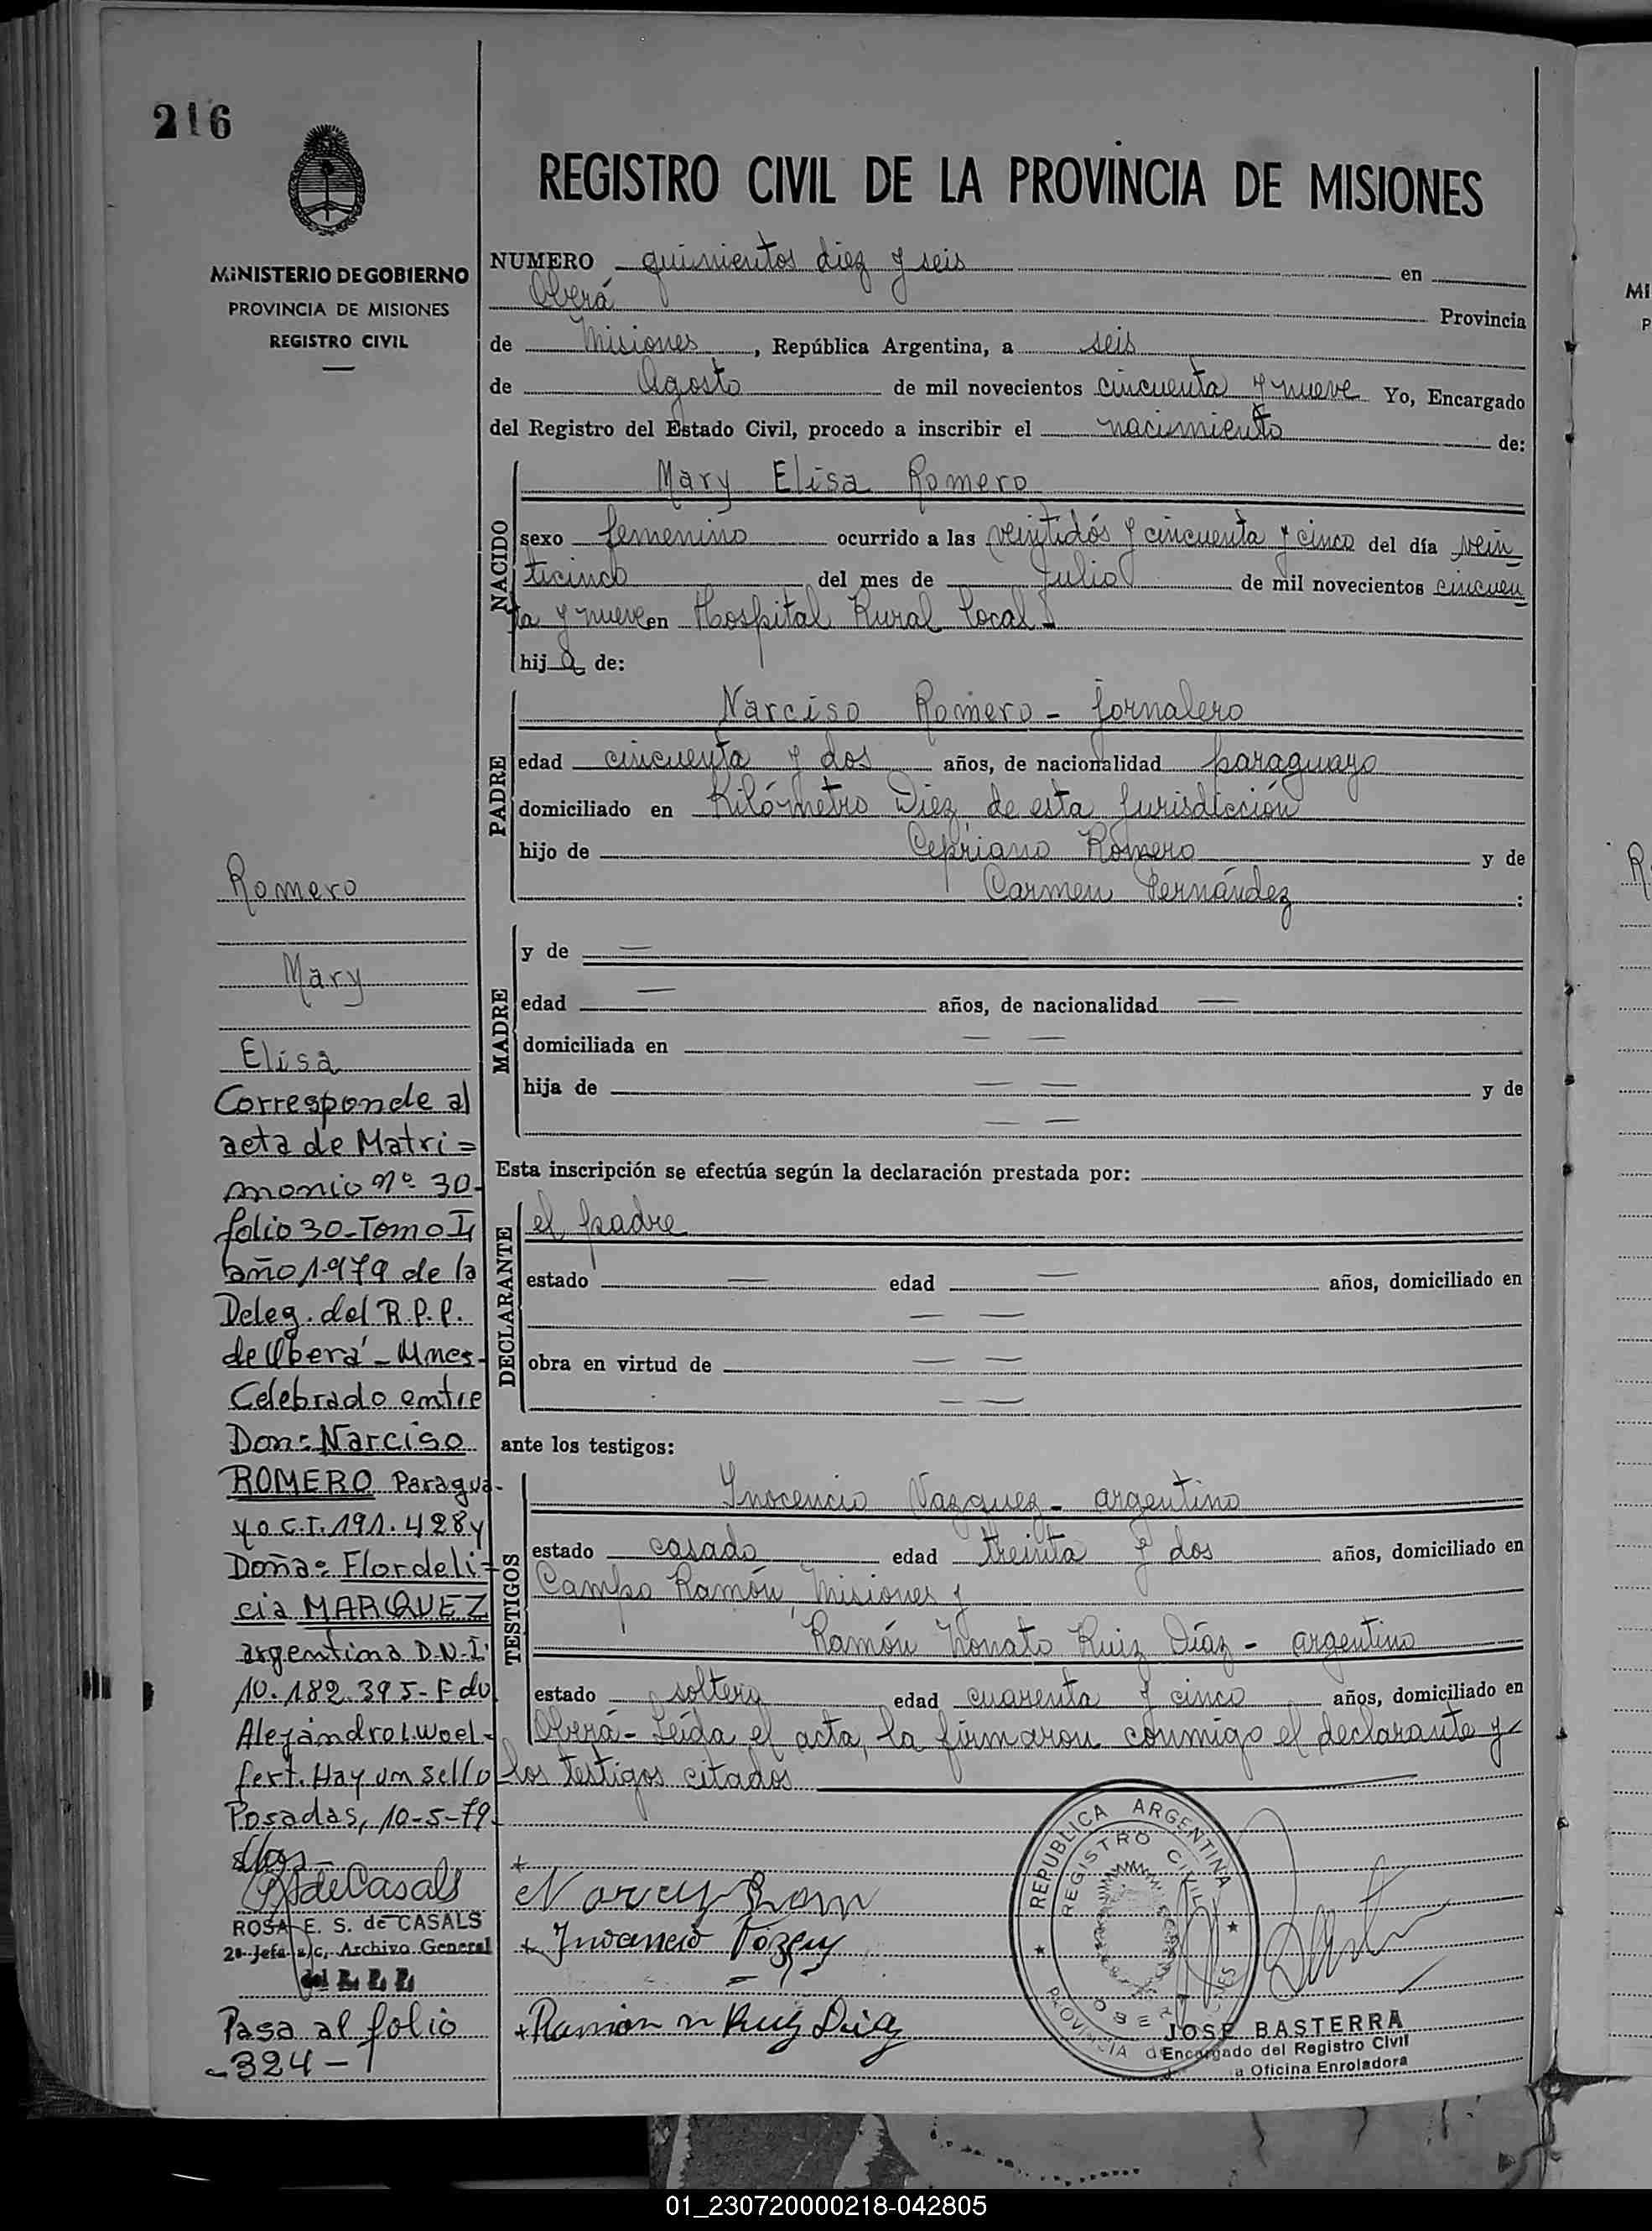 216
MINISTERIO DE GOBIERNO
PROVINCIA DE MISIONES
REGISTRO CIVIL
REGISTRO CIVIL DE LA PROVINCIA DE MISIONES
NUMERO quinientos diez y seis en
Oberá Provincia
de Misiones, República Argentina, a seis
de Agosto de mil novecientos cincuenta y nueve Yo, Encargado
del Registro del Estado Civil, procedo a inscribir el nacimiento de:
NACIDO
Mary Elisa Romero
sexo femenino ocurrido a las veintidós y cincuenta y cinco del día vein
ticinco del mes de Julio de mil novecientos cincuen
ta y nueve en Hospital Rural Local
hija de:
PADRE
Narciso Romero - jornalero
edad cincuenta y dos años, de nacionalidad paraguayo
domiciliado en Kilómetro Diez de esta jurisdicción
hijo de Cepriano Romero y de
Carmen Fernández :
MADRE
y de —
edad — años, de nacionalidad —
domiciliada en — —
hija de — — y de
— —
Esta inscripción se efectúa según la declaración prestada por:
DECLARANTE
el padre
estado — edad — años, domiciliado en
— —
obra en virtud de — —
— —
ante los testigos:
TESTIGOS
Inocencio Vazquez - argentino
estado casado edad treinta y dos años, domiciliado en
Campo Ramón, Misiones y
Ramón Donato Ruiz Díaz - argentino
estado soltero edad cuarenta y cinco años, domiciliado en
Oberá - Leída el acta, la firmaron conmigo el declarante y
los testigos citados
Romero
Mary
Elisa
Corresponde al
acta de Matri=
monio nº 30-
folio 30-Tomo I
año 1979 de la
Deleg. del R.P.P.
de Oberá - Mnes-
Celebrado entre
Don: Narciso
ROMERO Paragua-
yo C.I. 191.428 y
Doña: Flordeli=
cia MARQUEZ
argentina D.N.I.
10.182.395- Fdo
Alejandro L. Woel-
fert. Hay un sello
Posadas, 10-5-79-
deCasals
ROSA E. S. de CASALS
2a. Jefa a/c. Archivo General
del R. P. P.
Pasa al folio
-324-
+
+
+ Ramon n Ruiz Diaz
REPUBLICA ARGENTINA
REGISTRO CIVIL
OBERA
PROVINCIA DE MISIONES
JOSE BASTERRA
Encargado del Registro Civil
a Oficina Enroladora
MI
P
R
01_230720000218-042805